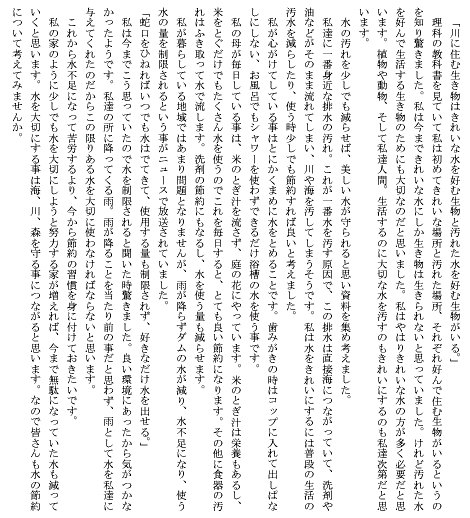 「川に住む生き物はきれいな水を好む生物と汚れた水を好む生物がいる。」
理科の教科書を見ていて私は初めてきれいな場所と汚れた場所、それぞれ好んで住む生物がいるというの
を知り驚きました。私は今まできれいな水にしか生き物は生きられないと思っていました。けれど汚れた水
を好んで生活する生き物のためにも大切なのだと思いました。私はやはりきれいな水の方が多く必要だと思
います。植物や動物、そして私達人間。生活するのに大切な水を汚すのもきれいにするのも私達次第だと思
います。
水の汚れを少しでも減らせば、美しい水が守られると思い資料を集め考えました。
私達に一番身近な排水の汚れ。これが一番水を汚す原因で、この排水は直接海につながっていて、洗剤や
油などがそのまま流れてしまい、川や海を汚してしまうそうです。私は水をきれいにするには普段の生活の
汚水を減らしたり、使う時少しでも節約すれば良いと考えました。
私が心がけてしている事はとにかくまめに水をとめることです。歯みがきの時はコップに入れて出しばな
しにしない、お風呂でもシャワーを使わずできるだけ浴槽の水を使う事です。
私の母が毎日している事は、米のとぎ汁を流さず、庭の花にやっています。米のとぎ汁は栄養もあるし、
米をとぐだけでもたくさん水を使うのでこれを毎日すると、とても良い節約になります。その他に食器の汚
れはふき取って水で流します。洗剤の節約にもなるし、水を使う量も減らせます。
私が暮らしている地域ではあまり問題となりませんが、雨が降らずダムの水が減り、水不足になり、使う
水の量を制限されるという事がニュースで放送されていました。
「蛇口をひねればいつでも水はでてきて、使用する量も制限されず、好きなだけ水を出せる。」
私は今までこう思っていたので水を制限されると聞いた時驚きました。良い環境にあったから気がつかな
かったようです。私達の所に降ってくる雨。雨が降ることを当たり前の事だと思わず、雨として水を私達に
与えてくれたのだからこの限りある水を大切に使わなければならないと思います。
これから水不足になって苦労するより、今から節約の習慣を身に付けておきたいです。
私の家のように少しでも水を大切にしようと努力する家が増えれば、今まで無駄になっていた水も減って
いくと思います。水を大切にする事は海、川、森を守る事につながると思います。なので皆さんも水の節約
について考えてみませんか。